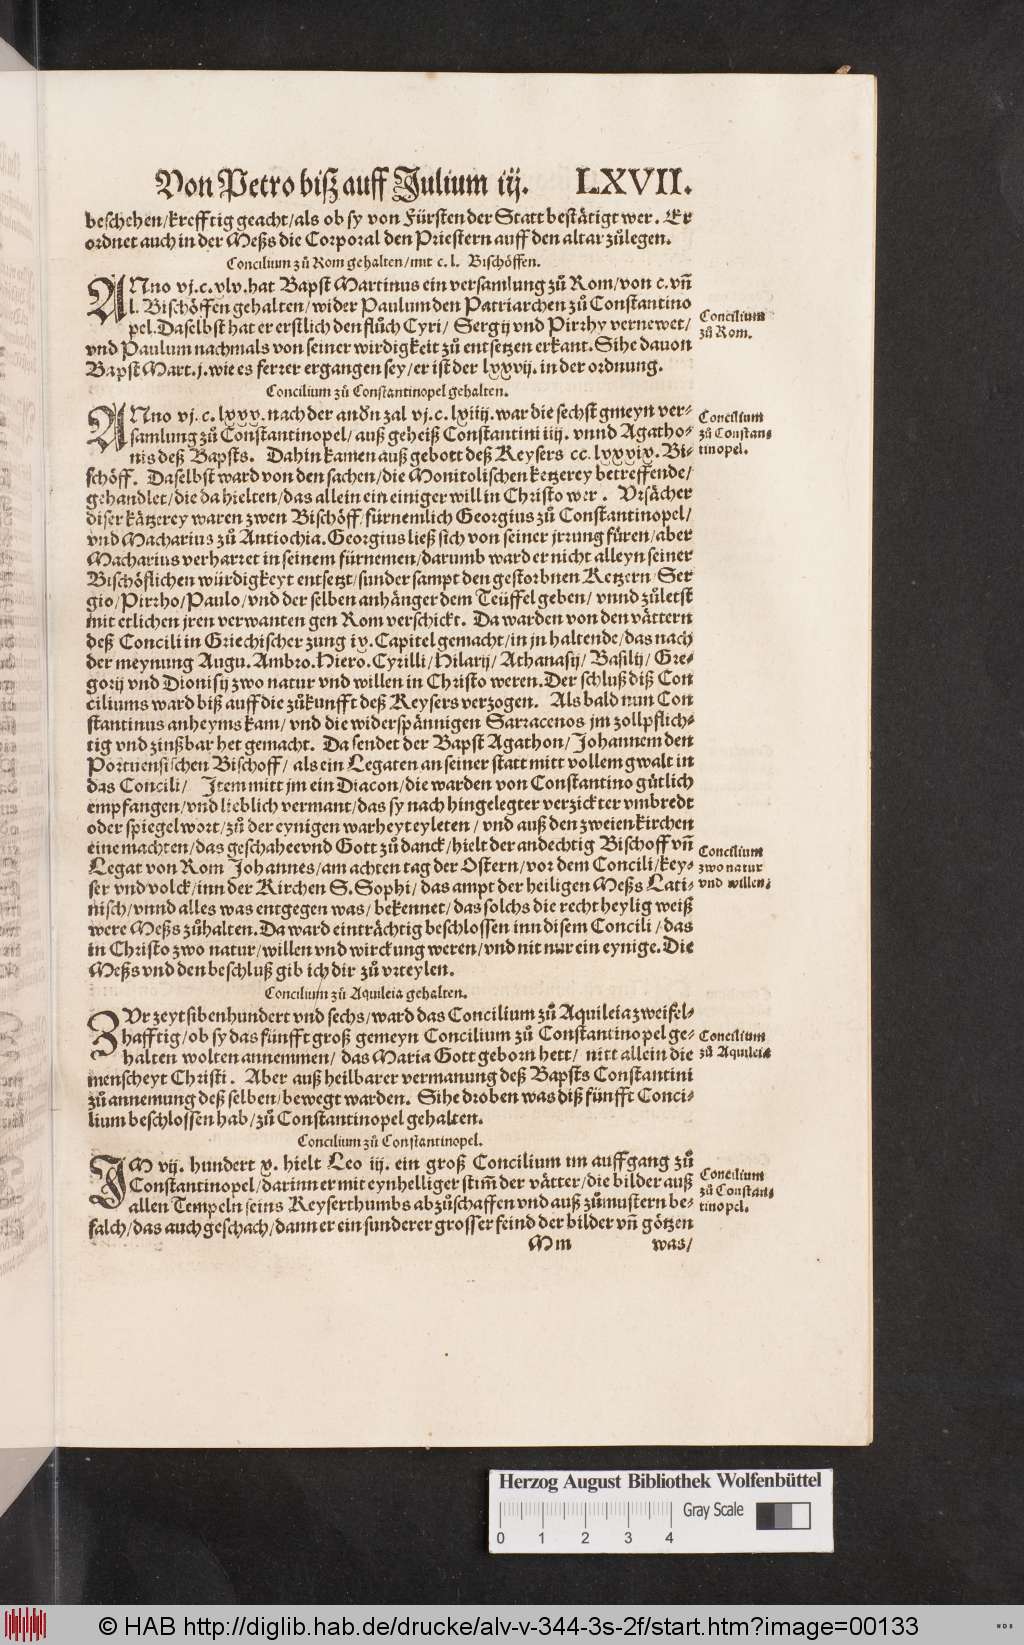 Von Petro biß auff Julium iij. LXVII.
beschehen/krefftig geacht/als ob sy von Fürsten der Statt bestätigt wer. Er
ordnet auch in der Meßs die Corporal den Priestern auff den altar zůlegen.
Concilium zů Rom gehalten/mit c. l. Bischöffen.
ANno vj.c.xlv. hat Bapst Martinus ein versamlung zů Rom/von c.vñ
l. Bischöffen gehalten/wider Paulum den Patriarchen zů Constantino
pel. Daselbst hat er erstlich den flůch Cyri/ Sergij vnd Pirrhy vernewet/
vnd Paulum nachmals von seiner wirdigkeit zů entsetzen erkant. Sihe dauon
Bapst Mart.j. wie es ferrer ergangen sey/er ist der lxxvij. in der ordnung.
Concilium zů Rom.
Concilium zů Constantinopel gehalten.
ANno vj.c.lxxx. nach der andn zal vj.c.lxiiij. war die sechst gmeyn ver-
samlung zů Constantinopel/ auß geheiß Constantini iiij. vnnd Agatho-
nis deß Bapsts. Dahin kamen auß gebott deß Keysers cc.lxxxix. Bi-
schöff. Daselbst ward von den sachen/die Monitolischen ketzerey betreffende/
gehandlet/die da hielten/das allein ein einiger will in Christo wer. Vrsächer
diser kätzerey waren zwen Bischöff/fürnemlich Georgius zů Constantinopel/
vnd Macharius zů Antiochia. Georgius ließ sich von seiner jrrung füren/aber
Macharius verharret in seinem fürnemen/darumb ward er nicht alleyn seiner
Bischöflichen würdigkeyt entsetzt/sunder sampt den gestorbnen Ketzern/Ser
gio/Pirrho/Paulo/vnd der selben anhänger dem Teüffel geben/ vnnd zůletst
mit etlichen jren verwanten gen Rom verschickt. Da warden von den vättern
deß Concili in Griechischer zung ix. Capitel gemacht/in jn haltende/das nach
der meynung Augu. Ambro. Hiero. Cyrilli/Hilarij/Athanasij/Basilij/Gre-
gorij vnd Dionisij zwo natur vnd willen in Christo weren. Der schluß diß Con
ciliums ward biß auff die zůkunfft deß Keysers verzogen. Als bald nun Con
stantinus anheyms kam/ vnd die widerspännigen Sarracenos jm zollpflich-
tig vnd zinßbar het gemacht. Da sendet der Bapst Agathon/ Johannem den
Portuensischen Bischoff/ als ein Legaten an seiner statt mitt vollem gwalt in
das Concili/ Item mitt jm ein Diacon/die warden von Constantino gůtlich
empfangen/vnd lieblich vermant/das sy nach hingelegter verzickter vmbredt
oder spiegelwort/zů der eynigen warheyt eyleten/ vnd auß den zweien kirchen
eine machten/das geschahe evnd Gott zů danck/hielt der andechtig Bischoff vñ
Legat von Rom Johannes/am achten tag der Ostern/vor dem Concili/key-
ser vnd volck/inn der Kirchen S. Sophi/ das ampt der heiligen Meßs Lati-
nisch/vnnd alles was entgegen was/bekennet/das solchs die recht heylig weiß
were Meßs zůhalten. Da ward einträchtig beschlossen inn disem Concili/das
in Christo zwo natur/willen vnd wirckung weren/vnd nit nur ein eynige. Die
Meßs vnd den beschluß gib ich dir zů vrteylen.
Concilium zů Constan- tinopel.
Concilium zwo natur vnd willen.
Concilium zů Aquileia gehalten.
ZVr zeyt sibenhundert vnd sechs/ward das Concilium zů Aquileia zweifel-
hafftig/ob sy das fünfft groß gemeyn Concilium zů Constantinopel ge-
halten wolten annemmen/ das Maria Gott geborn hett/ nitt allein die
menscheyt Christi. Aber auß heilbarer vermanung deß Bapsts Constantini
zů annemung deß selben/bewegt warden. Sihe droben was diß fünfft Conci-
lium beschlossen hab/zů Constantinopel gehalten.
Concilium zů Aquileia
Concilium zů Constantinopel.
IM vij. hundert x. hielt Leo iij. ein groß Concilium im auffgang zů
Constantinopel/darinn er mit eynhelliger stim̃ der vätter/die bilder auß
allen Tempeln seins Keyserthumbs abzůschaffen vnd auß zůmustern be-
falch/das auch geschach/dann er ein sunderer grosser feind der bilder vñ götzen
Concilium zů Constan- tinopel.
Mm was/
Herzog August Bibliothek Wolfenbüttel
Gray Scale
0 1 2 3 4
© HAB http://diglib.hab.de/drucke/alv-v-344-3s-2f/start.htm?image=00133